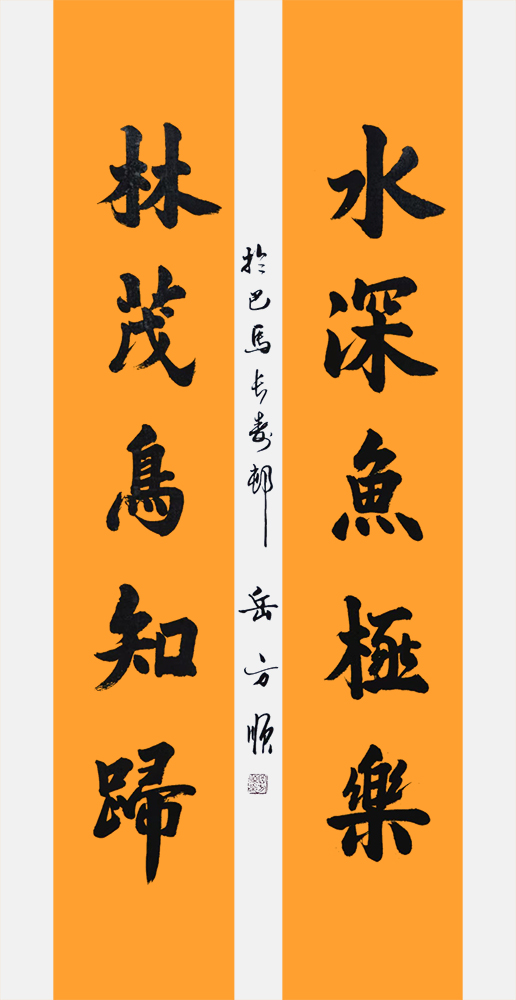 水深魚極樂
林茂鳥知歸
於巴馬长寿邨 岳方順